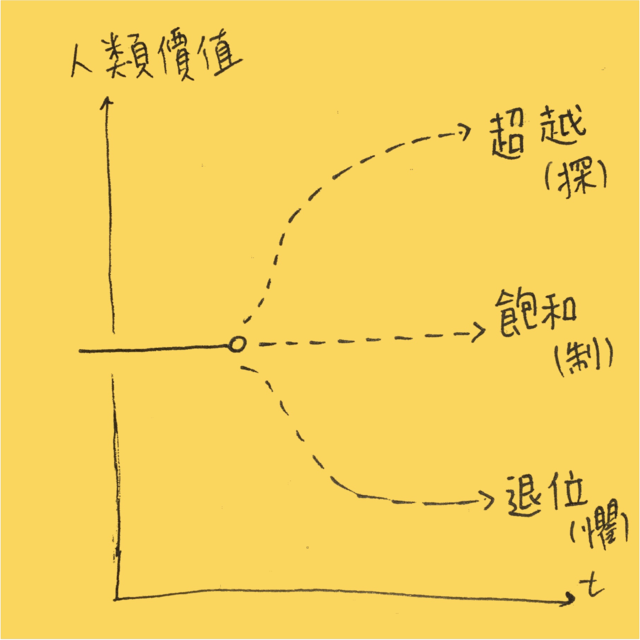 人類價值
超越
(探)
飽和
(制)
退位
(懼)
t